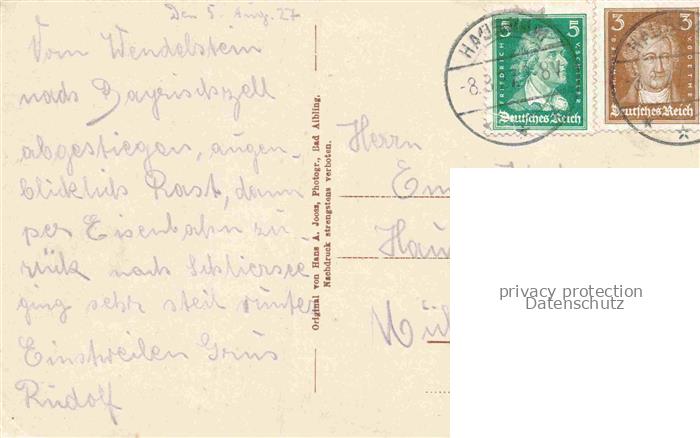 Den 5. Aug. 27
Vom Wendelstein
nach Bayrischzell
abgestiegen, augen-
blicklich Rast, dann
per Eisenbahn zu-
rück nach Schliersee
ging sehr steil runter
Einstweilen Grus
Rudolf
Original von Hans A. Joosz, Photogr., Bad Aibling.
Nachdruck strengstens verboten.
5 5
FRIEDRICH V. SCHILLER
Deutsches Reich
3 3
V. GOETHE
Deutsches Reich
HAU
-8.
Herrn
Em
Hau
Mü
privacy protection
Datenschutz